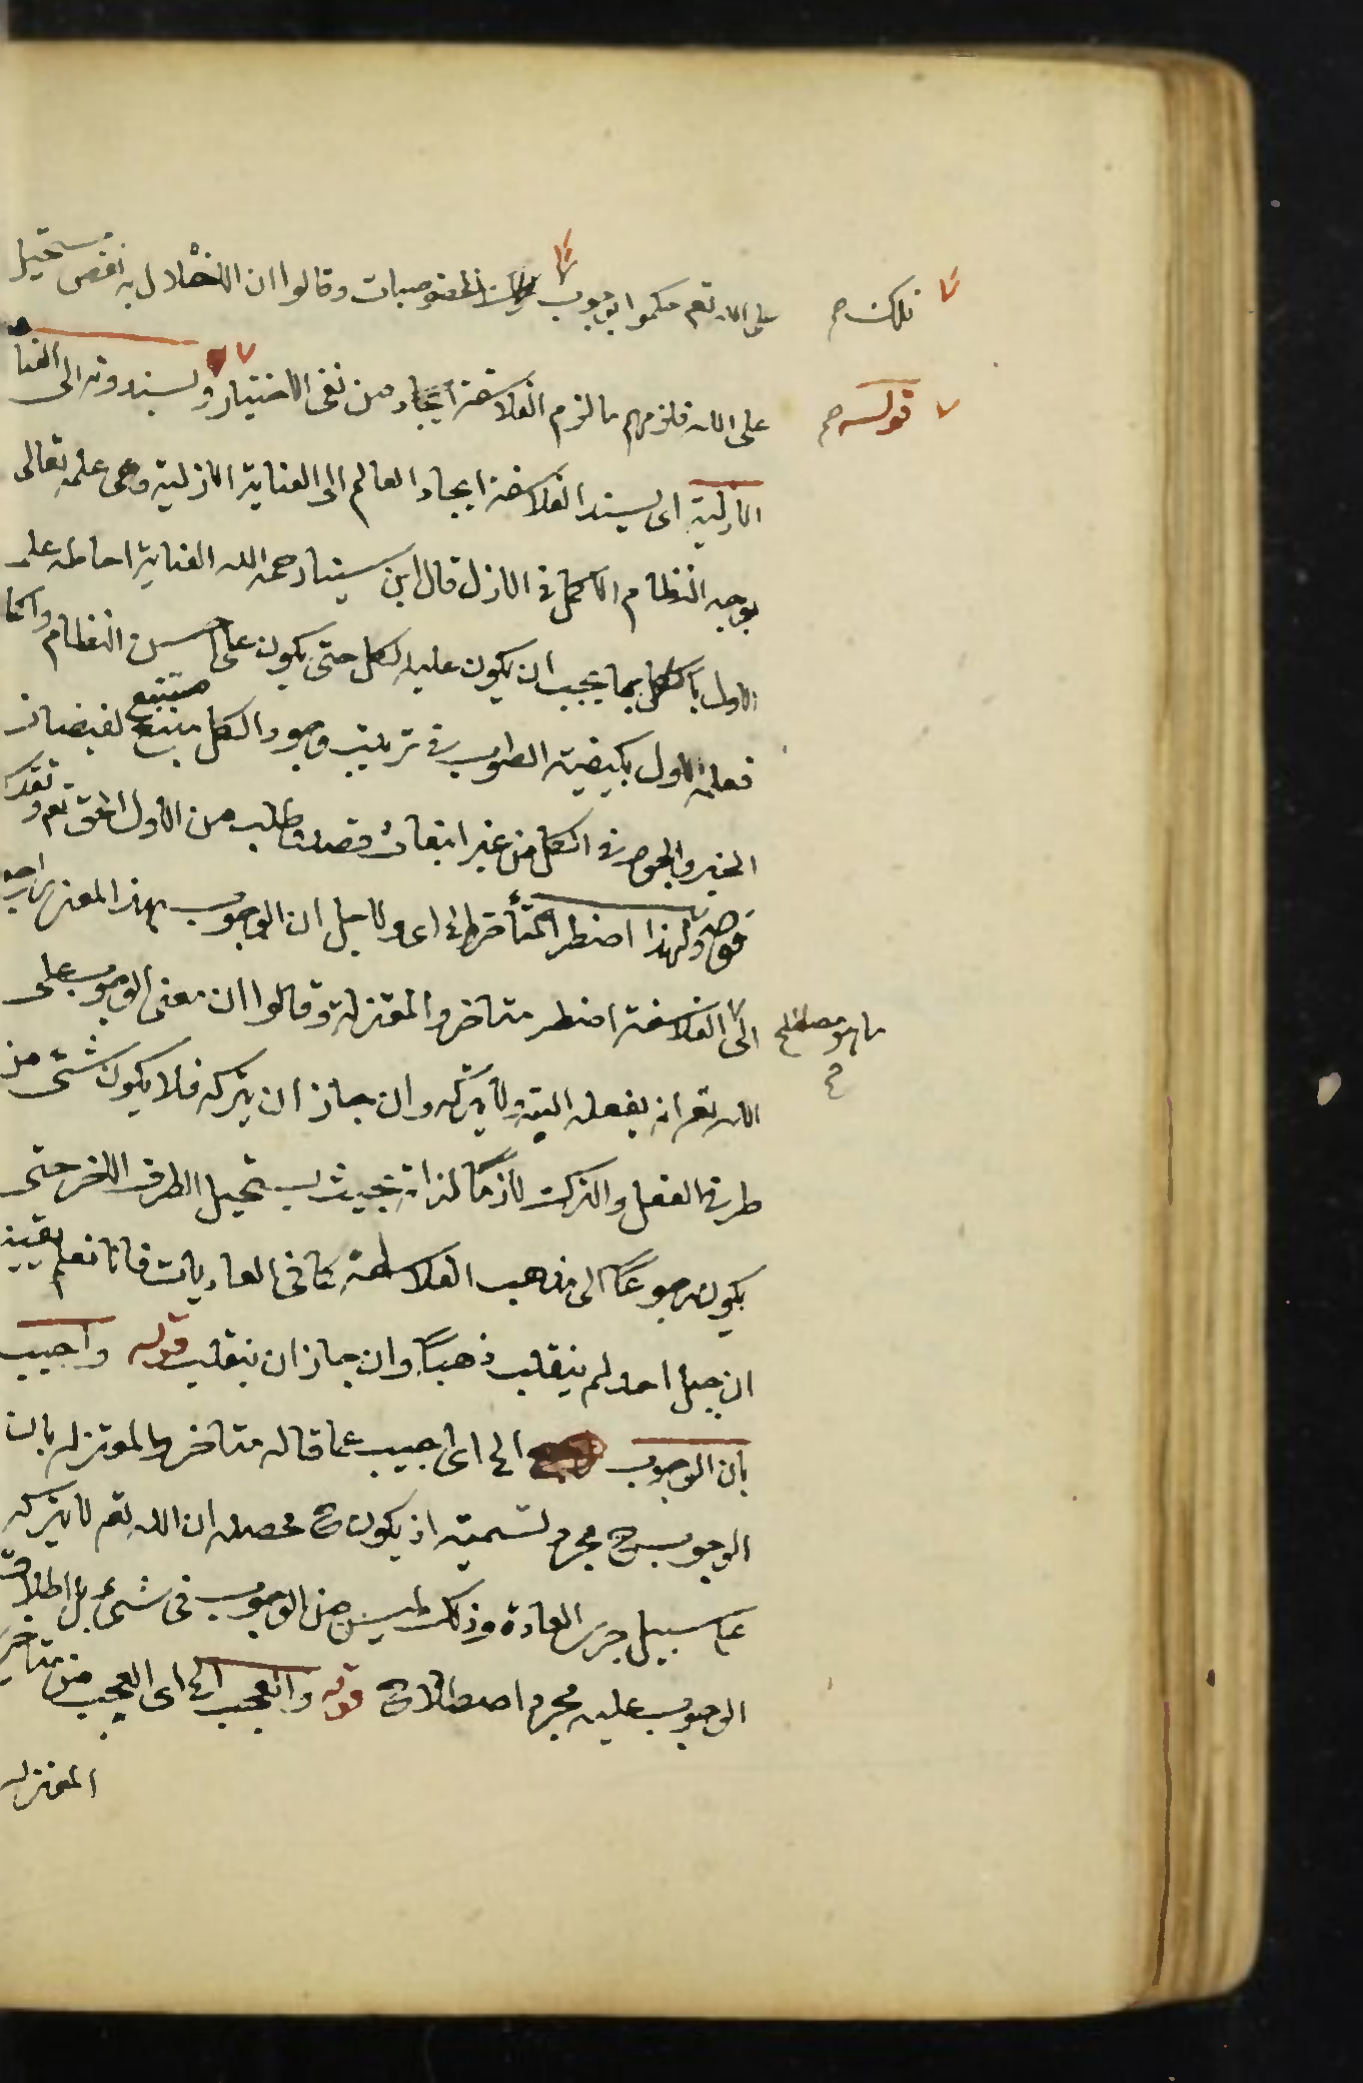 على الله تعم حكموا بوجوب تلك الخصوصيات وقالوا ان الاخلال به نقص مستحيل
تلك صح
على الله فلزمهم ما لزم الفلاسفة من نفى الاختيار ويسندونه الى العنا
قوله صح
الازلية اى يسند الفلاسفة ايجاد العالم الى العناية الازلية وهى علمه تعالى
بوجه النظام الاكمل فى الازل قال ابن سينا رحمه الله العناية احاطه علم
الاول بالكل بما يجب ان يكون عليه الكل حتى يكون على احسن النظام
فعلم الاول بكيفية الصواب فى ترتيب وجود الكل منبع لفيضان
الخير والجود فى الكل من غير انبعاث قصد وطلب من الاول الحق تعم
ولهذا اضطر المتأخر الخ اى ولاجل ان الوجوب بهذا المعنى
الى الفلاسفة اضطر متاخروا المعتزلة وقالوا ان معنى الوجوب على
ما هو مصطلح
صح
الله تعم انه يفعله البتة ولا يتركه وان جاز ان يتركه فلا يكون شئ من
طرفى الفعل والترك لازمًا لذاته بحيث يستحيل الطرف الاخر حتى
يكون رجوعًا الى مذهب الفلاسفة كما فى العاديات فانا نعلم يقينا
ان جبل احد لم ينقلب ذهبًا وان جاز ان ينقلب قوله واجيب
بان الوجوب الخ اى اجيب عما قاله متاخروا المعتزله بان
الوجوب ح مجرد تسمية اذ يكون ح محصله ان الله تعم لا يتركه
على سبيل جرى العادة وذلك ليس من الوجوب فى شئ بل اطلاق
الوجوب عليه مجرد اصطلاح قوله والعجب الخ اى العجب من
المعتزله